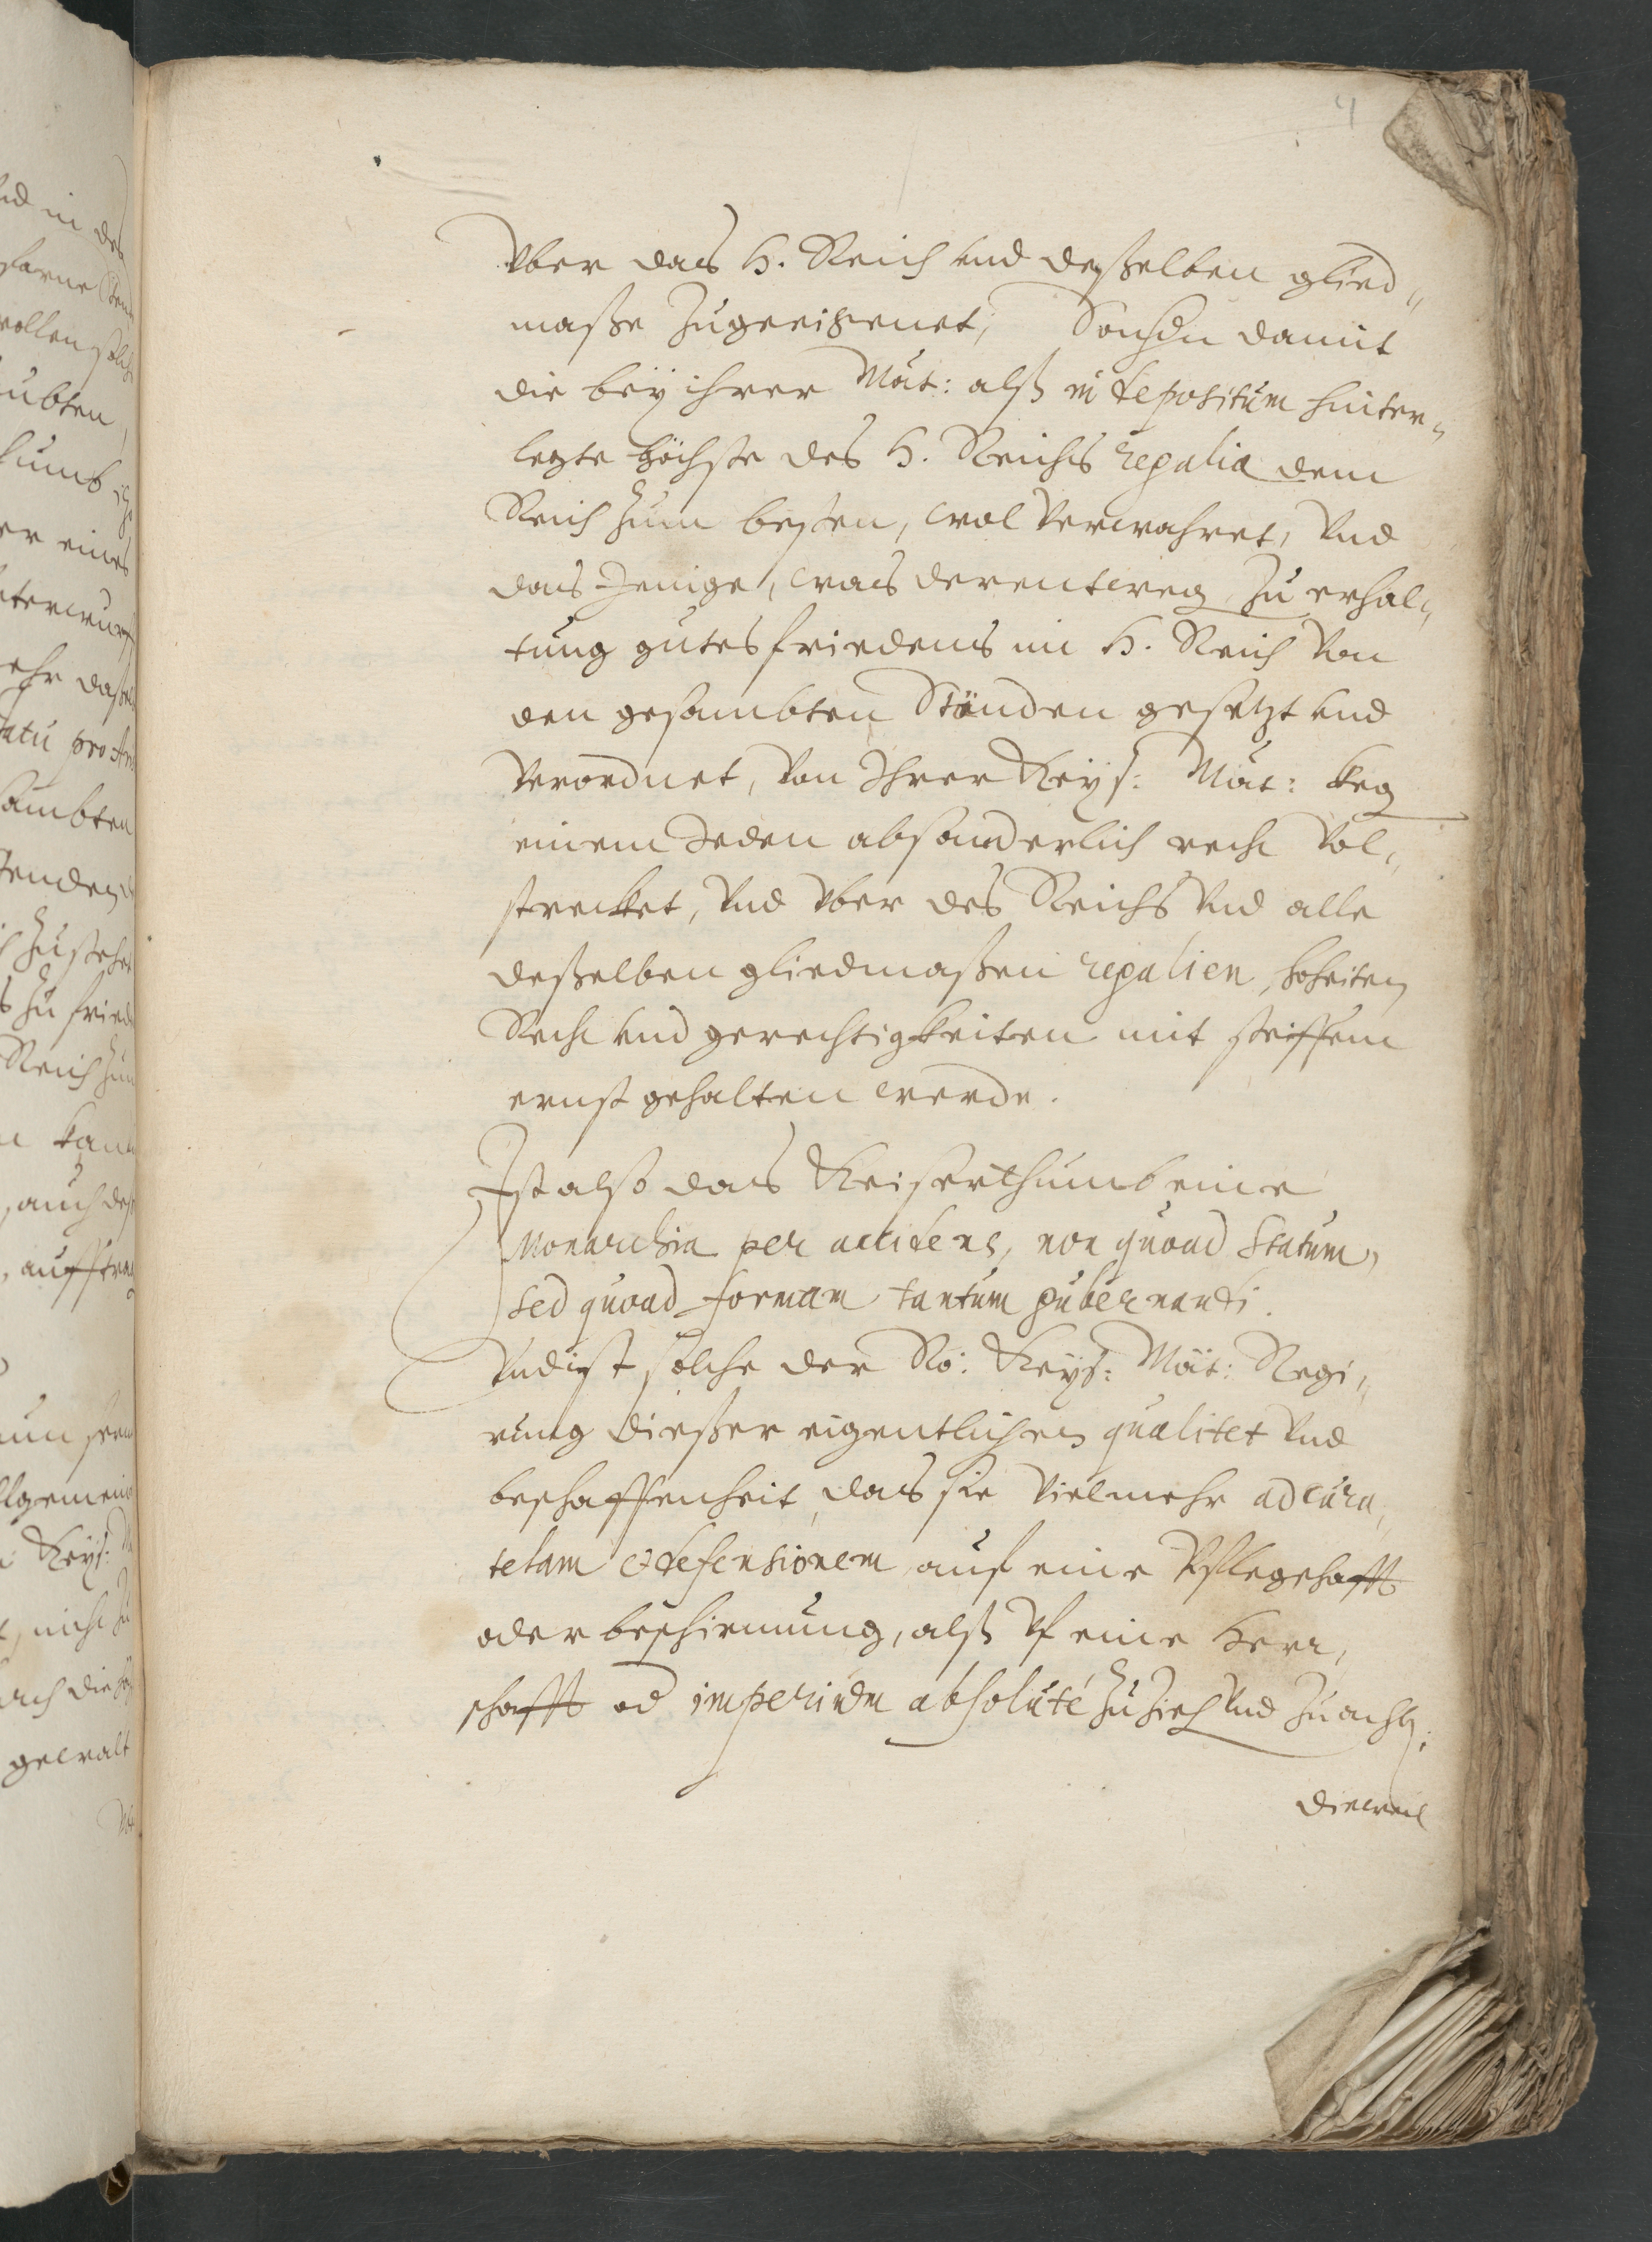 4
Vber das H. Reich und deßelben glied„
maße zugeeichenet, Sondern damit
die beÿ ihrer Maÿt: alß in depositum hinter„
legte höchste des H. Reichs regalia dem
Reich zum besten, wol verwahret, Vnd
das Jenige, was derentweg zu erhal„
tung gutes friedens im H. Reich Von
den gesambten Ständen gesetzt und
Verordnet, Von Ihrer Keÿs: Maÿt: keg
einem Jeden absonderlich recht Vol„
strecket, Vnd Vber des Reichs Vnd alle
deßelben gliedmaßen regalien, hoheiten,
Recht und gerechtigkeiten mit steiffem
ernst gehalten werde.
Ist also das Keiserthumb eine
Monarchia per accidens, non quoad statum,
sed quoad formam tantum gubernandi.
Vnd ist solche der Rö: Keÿs: Maÿt: Regi„
rung dießer eigentlichen qualitet Vnd
beschaffenheit, das sie Vielmehr ad cura„
telam et defensionem auf eine Pflegschafft
oder beschirmung, alß Vf eine Herr„
schafft od imperium absolutè zu zieh Vnd zu acht;
dieweil